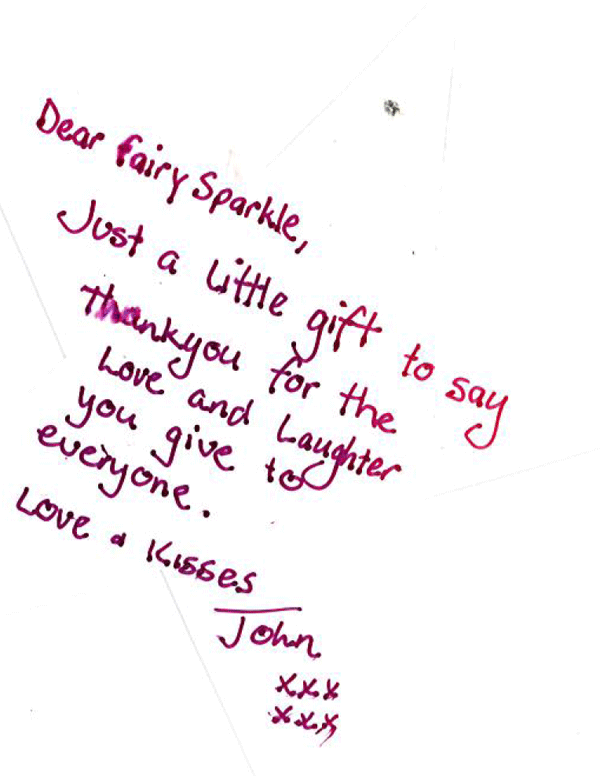 Dear Fairy Sparkle,
Just a little gift to say
thankyou for the
Love and Laughter
you give to
everyone.
Love & Kisses
John
xxx
xxx